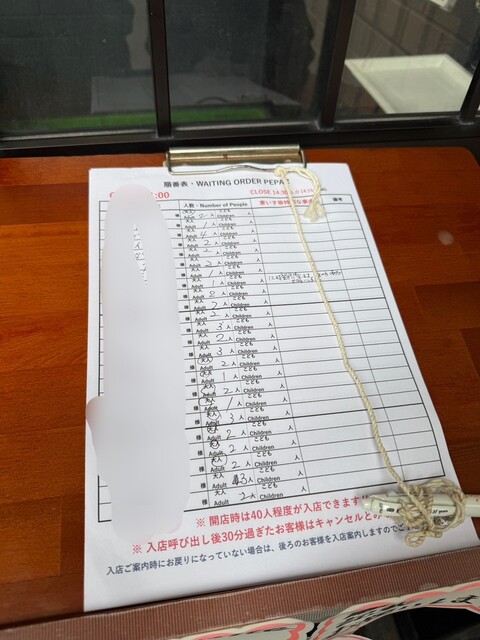 順番表・WAITING ORDER PEPA
:00 CLOSE 14:30
人数・Number of People 備考
様 大人 Adult 2 人 こども Children 人
様 大人 Adult 1 人 こども Children 人
様 大人 Adult 4 人 こども Children 人
様 大人 Adult 2 人 こども Children 人
様 大人 Adult 2 人 こども Children 人
様 大人 Adult 2 人 こども Children 人
様 大人 Adult 1 人 こども Children 人
様 大人 Adult 1 人 こども Children 人
様 大人 Adult 人 こども Children 人
様 大人 Adult 2 人 こども Children 人
様 大人 Adult 2 人 こども Children 人
様 大人 Adult 3 人 こども Children 人
様 大人 Adult 2 人 こども Children 人
様 大人 Adult 3 人 こども Children 人
様 大人 Adult 2 人 こども Children 人
様 大人 Adult 1 人 こども Children 人
様 大人 Adult 2 人 こども Children 人
様 大人 Adult 1 人 こども Children 人
様 大人 Adult 3 人 こども Children 人
様 大人 Adult 2 人 こども Children 人
様 大人 Adult 2 人 こども Children 人
様 大人 Adult 2 人 こども Children 人
様 大人 Adult 3 人 こども Children 人
様 大人 Adult 2 人 こども Children 人
※ 開店時は40人程度が入店できます
※ 入店呼び出し後30分過ぎたお客様はキャンセルと
入店ご案内時にお戻りになっていない場合は、後ろのお客様を入店案内しますのでご